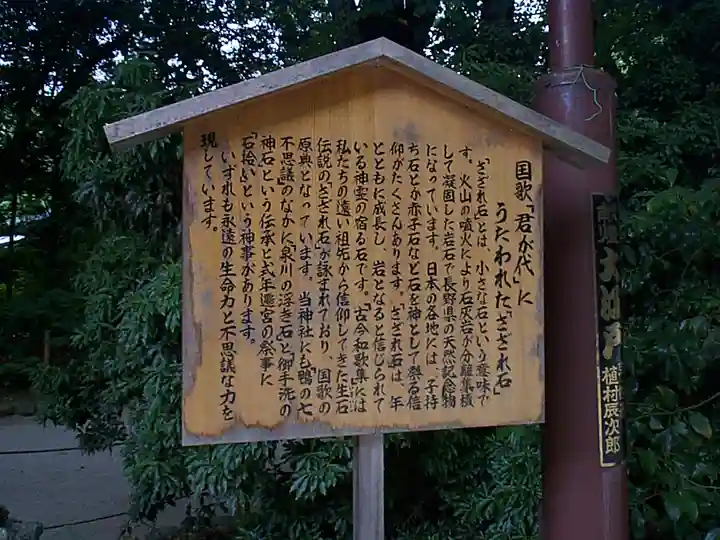 国歌「君が代」に
うたわれた「さざれ石」
「さざれ石」とは、小さな石という意味で
す。火山の噴火により石灰岩が分離集積
して凝固した岩石で長野県の天然記念物
になっています。日本の各地には、子持
ち石とか赤子石など石を神として祭る信
仰がたくさんあります。「さざれ石」は、年
とともに成長し、岩となると信じられて
いる神霊の宿る石です。古今和歌集には
私たちの遠い祖先から信仰してきた生石
伝説の「さざれ石」が詠まれており、国歌の
原典となっています。当神社にも「鴨の七
不思議」のなかに泉川の浮き石と「御手洗の
神石」という伝承と式年遷宮の祭事に
「石拾い」という神事があります。
いずれも永遠の生命力と不思議な力を
現しています。
植村辰次郎